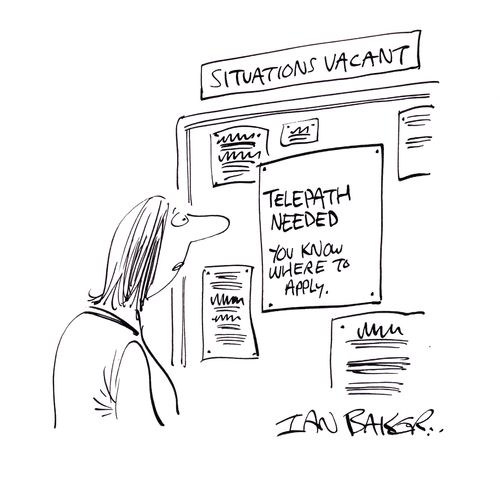 SITUATIONS VACANT
TELEPATH
NEEDED
YOU KNOW
WHERE TO
APPLY.
IAN BAKER..